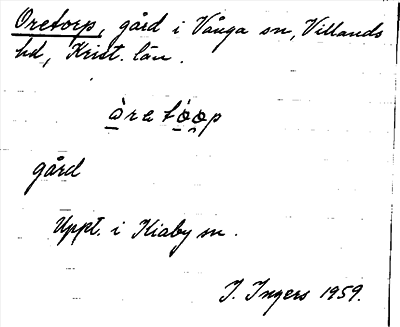 Oretorp, gård i Vånga sn, Villands
hd, Krist. län.
òreto̯o̯p
gård
Uppt. i Kiaby sn.
I. Ingers 1959.